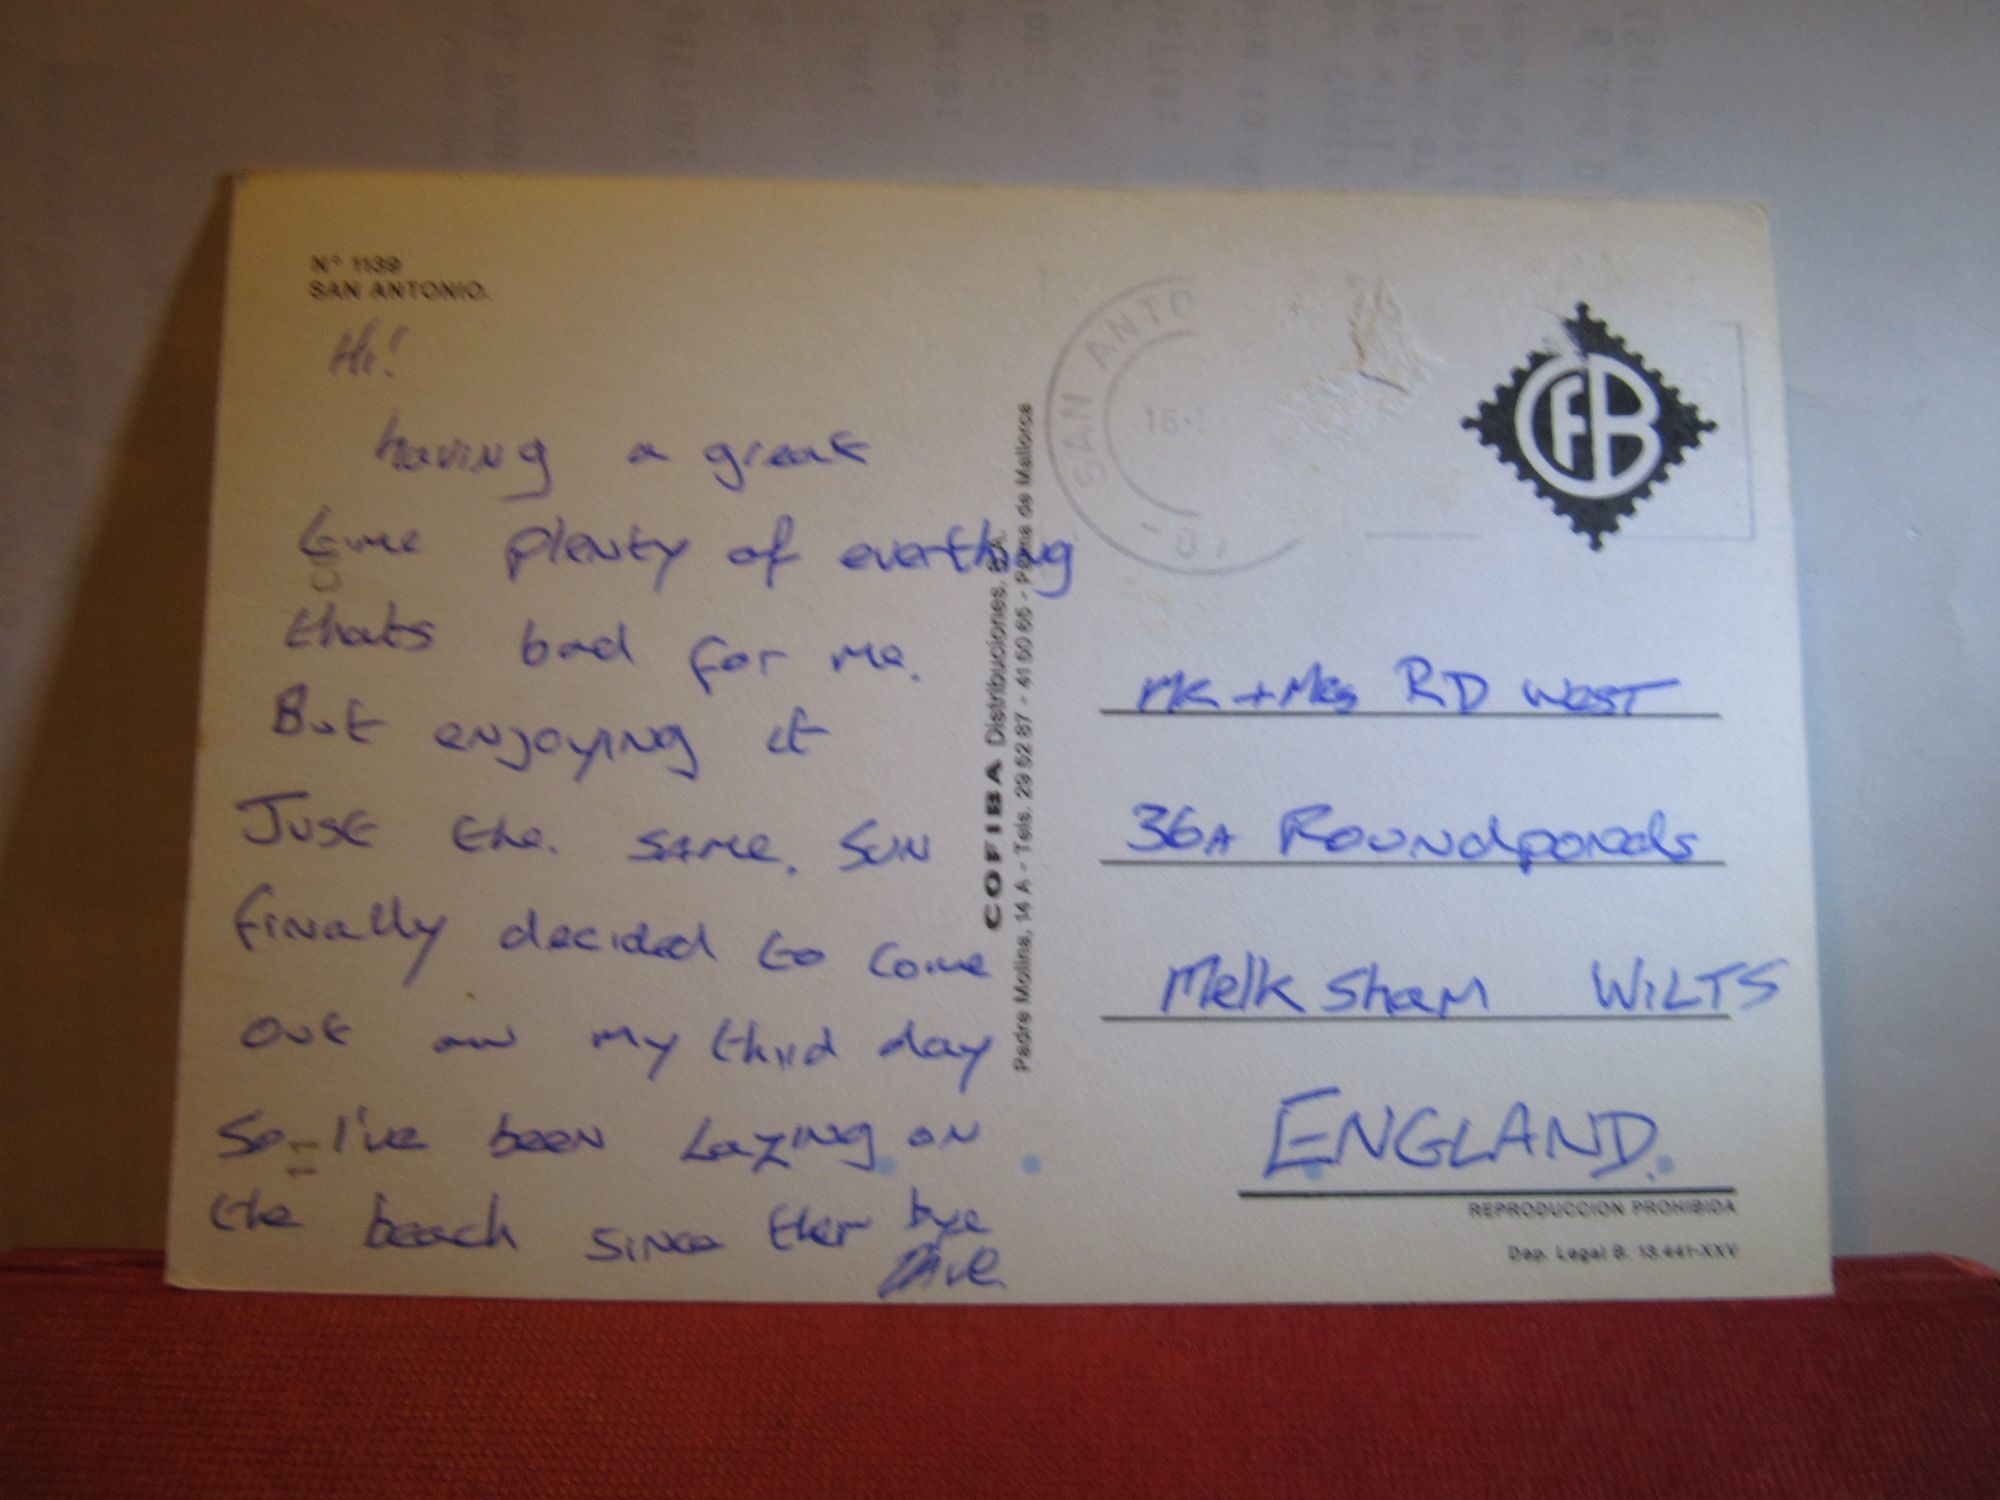 Nº 1139
SAN ANTONIO.
Hi!
having a great
time plenty of everthing
thats bad for me.
But enjoying it
Just the. same. SUN
finally decided to come
out on my third day
So I've been Lazing on
the beach since ther bye
DAve
COFIBA Distribuciones, S.A.
Padre Molina, 14 A - Tels. 29 52 87 - 41 50 65 - Palma de Mallorca
SAN ANTO
16
CFB
MR + MRs RD West
36A Roundponds
Melksham WILTS
ENGLAND.
REPRODUCCION PROHIBIDA
Dep. Legal B. 13.441-XXV